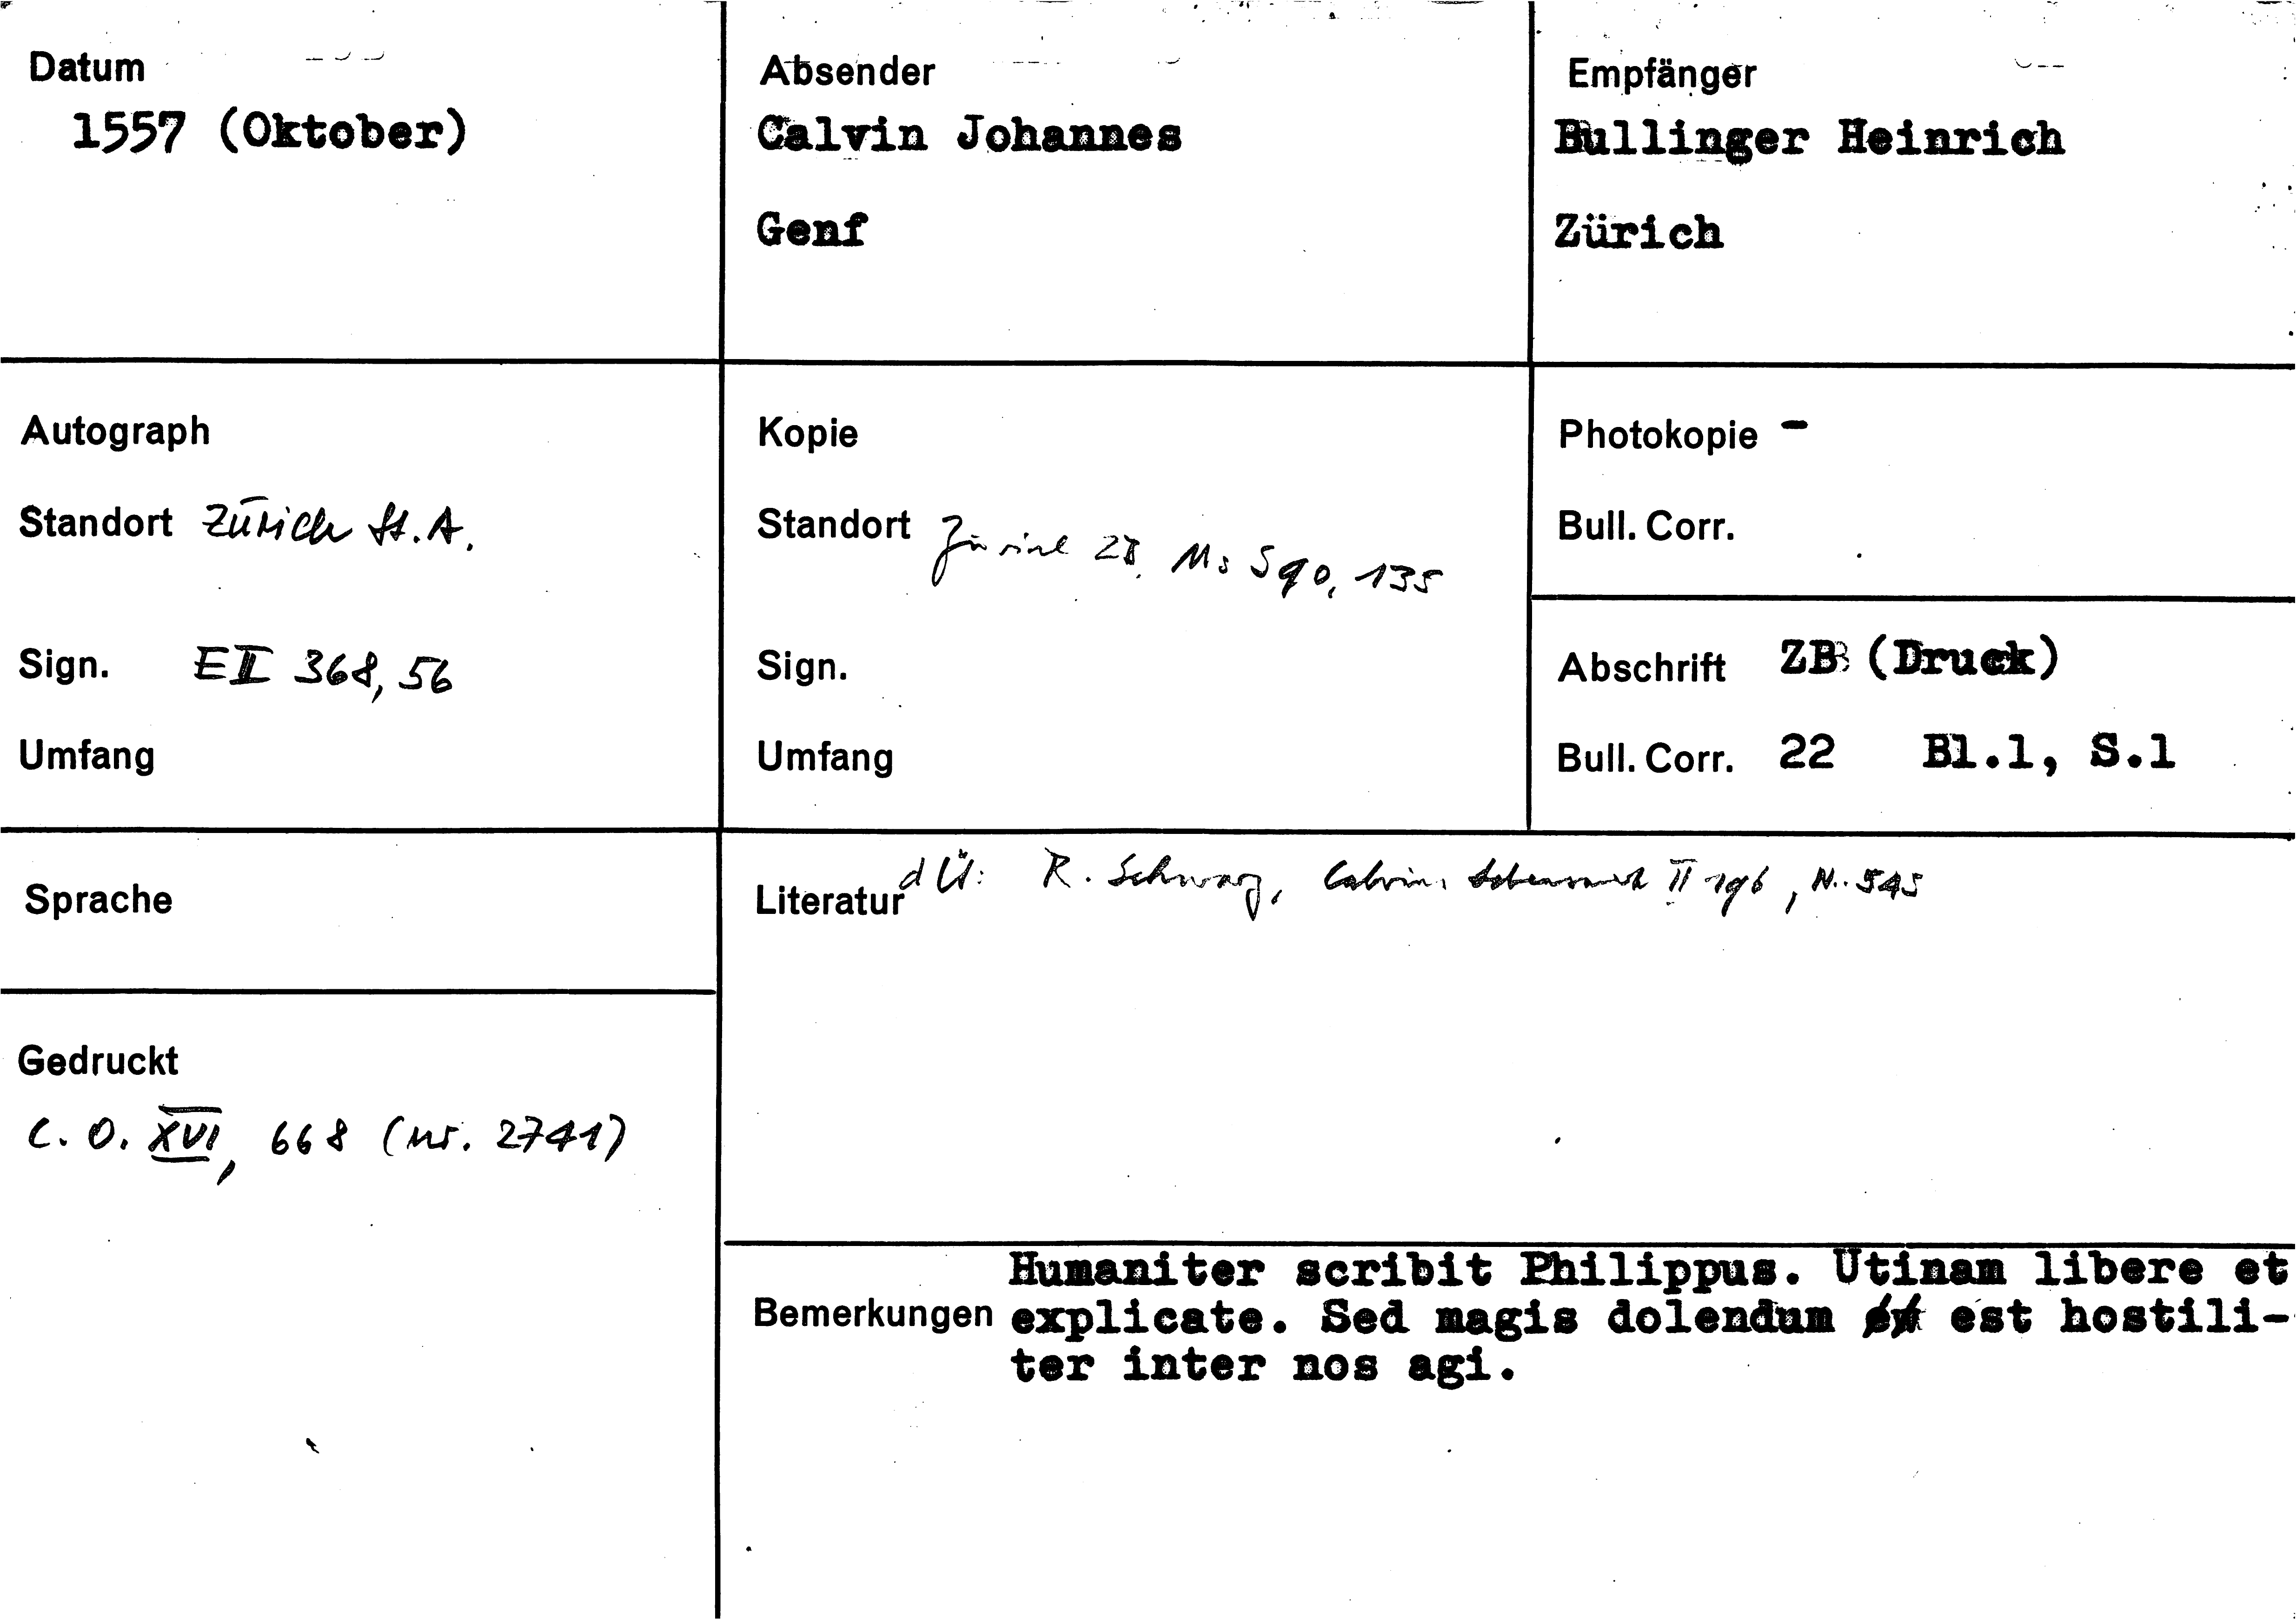 Datum
1557 (Oktober)
Absender
Calvin Johannes
Genf
Empfänger
Bullinger Heinrich
Zürich
Autograph
Standort Zürich St.A.
Sign. EII 368,56
Umfang
Kopie
Standort Zürich ZB, Ms S 90, 135
Sign.
Umfang
Photokopie -
Bull. Corr.
Abschrift ZB (Druck)
Bull. Corr. 22 Bl.1, S.1
Sprache
Gedruckt
C. O. XVI, 668 (nr. 2741)
Literatur dÜ: R. Schwarz, Calvins II 196, N. 545
Bemerkungen
Humaniter scribit Philippus. Utinam libere et
explicate. Sed magis dolendum est hostili-
ter inter nos agi.